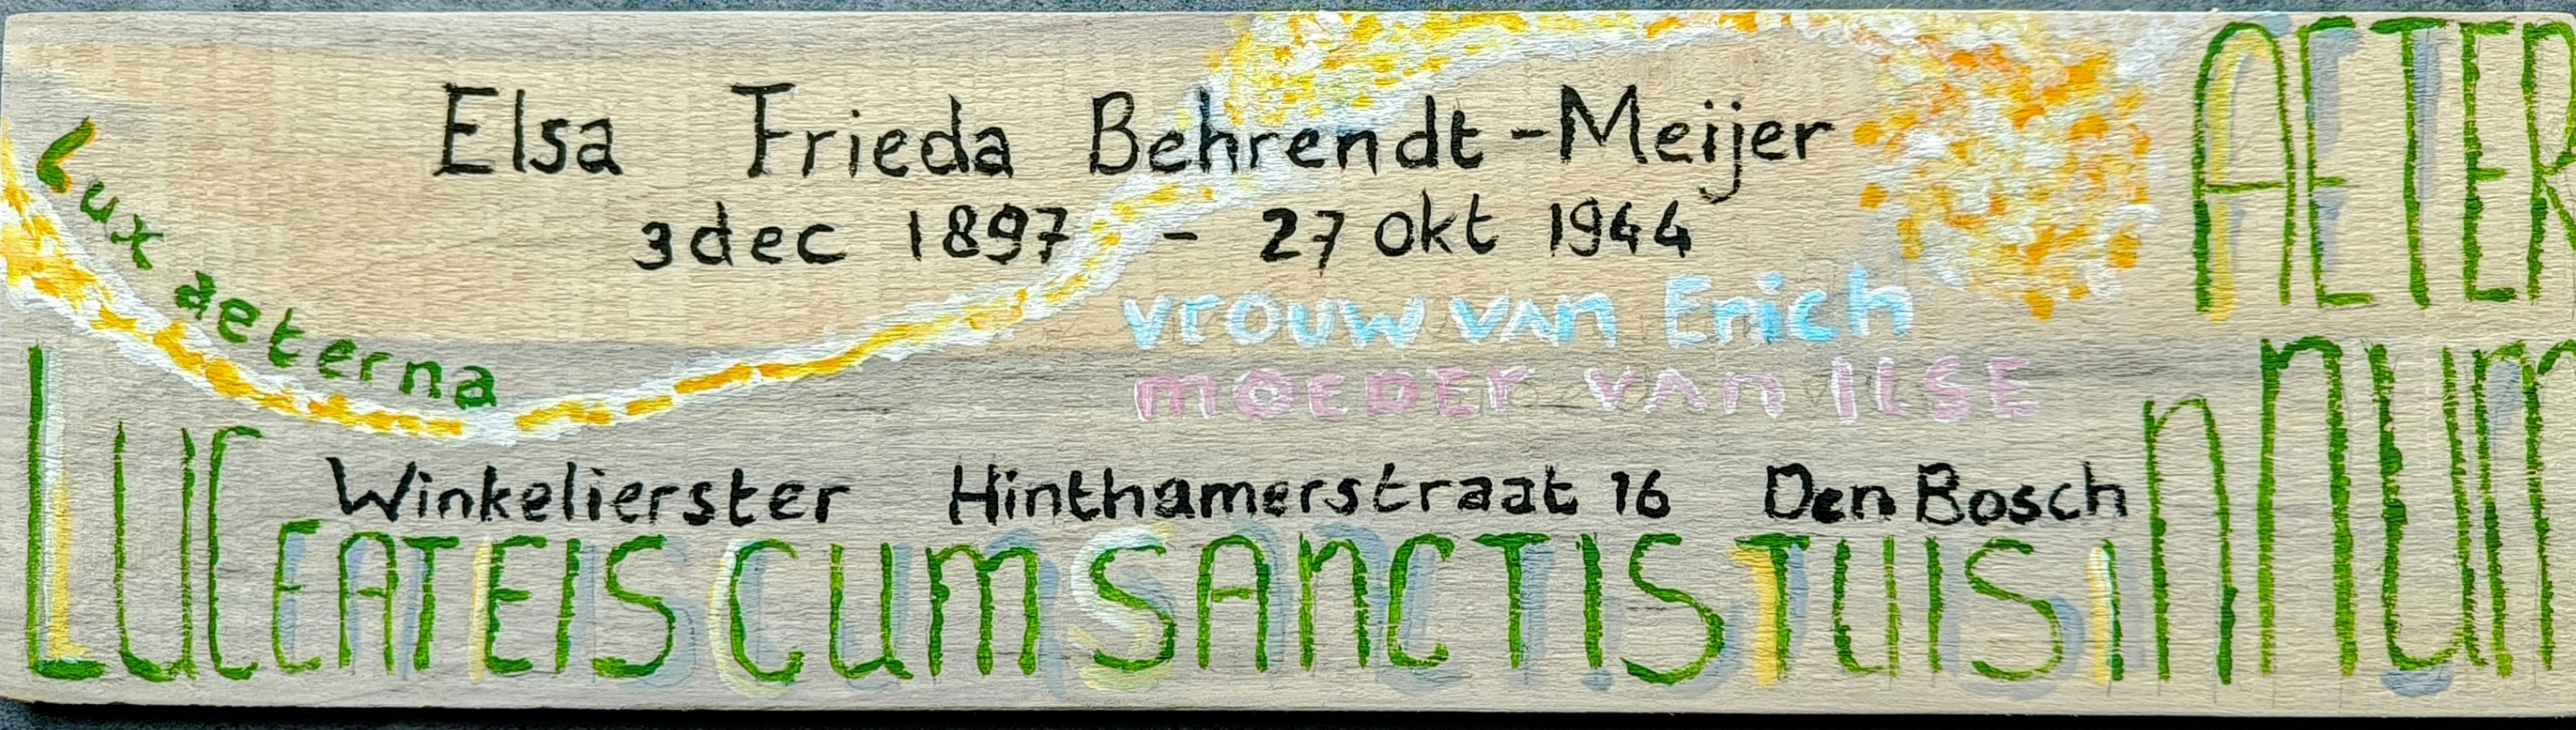 Elsa Frieda Behrendt-Meijer
3 dec 1897 - 27 okt 1944
vrouw van Erich
moeder van ILSE
Lux aeterna
Winkelierster Hinthamerstraat 16 Den Bosch
LUCEAT EIS CUM SANCTIS TUIS In
AETER
nnum